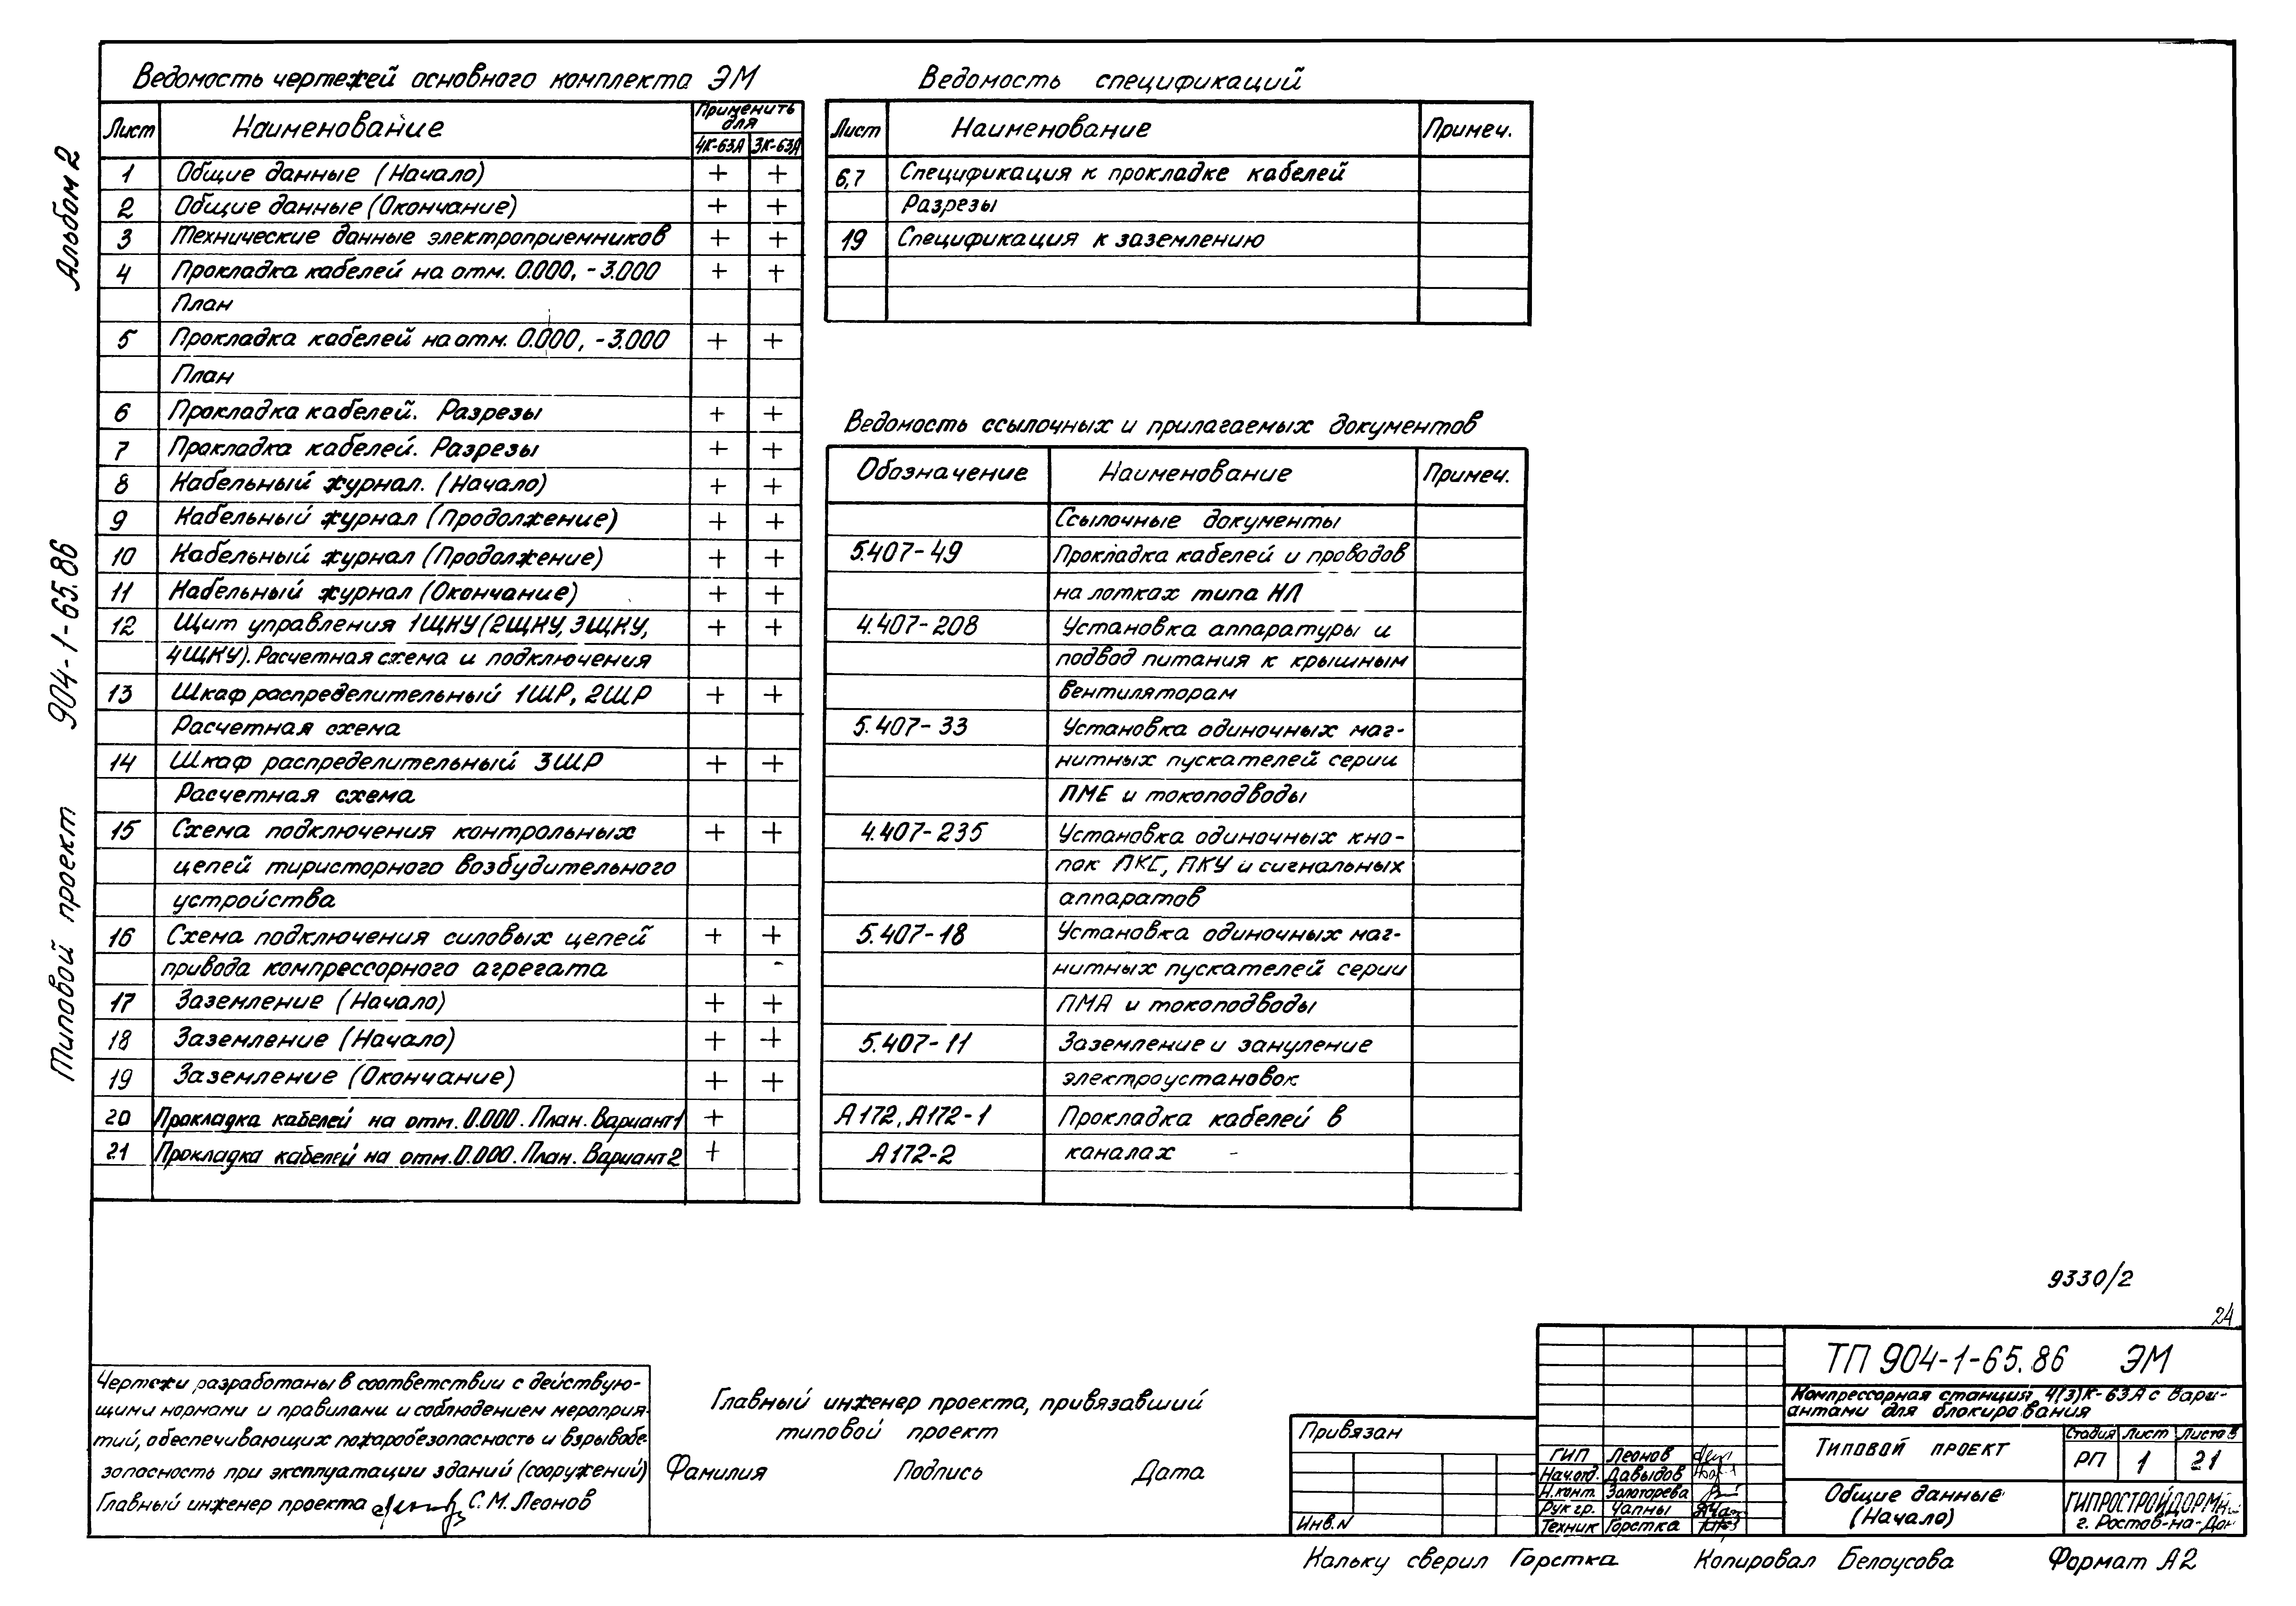 Альбом 2
904-1-65.86
Типовой проект
Ведомость чертежей основного комплекта ЭМ
Лист Наименование Применить для
4К-63А 3К-63А
1 Общие данные (Начало) + +
2 Общие данные (Окончание) + +
3 Технические данные электроприемников + +
4 Прокладка кабелей на отм. 0.000, -3.000 + +
План
5 Прокладка кабелей на отм. 0.000, -3.000 + +
План
6 Прокладка кабелей. Разрезы + +
7 Прокладка кабелей. Разрезы + +
8 Кабельный журнал. (Начало) + +
9 Кабельный журнал (Продолжение) + +
10 Кабельный журнал (Продолжение) + +
11 Кабельный журнал (Окончание) + +
12 Щит управления 1ЩКУ (2ЩКУ, 3ЩКУ, + +
4ЩКУ). Расчетная схема и подключения
13 Шкаф распределительный 1ШР, 2ШР + +
Расчетная схема
14 Шкаф распределительный 3ШР + +
Расчетная схема
15 Схема подключения контрольных + +
цепей тиристорного возбудительного
устройства
16 Схема подключения силовых цепей + +
привода компрессорного агрегата
17 Заземление (Начало) + +
18 Заземление (Начало) + +
19 Заземление (Окончание) + +
20 Прокладка кабелей на отм. 0.000. План. Вариант 1 +
21 Прокладка кабелей на отм. 0.000. План. Вариант 2 +
Ведомость спецификаций
Лист Наименование Примеч.
6,7 Спецификация к прокладке кабелей
Разрезы
19 Спецификация к заземлению
Ведомость ссылочных и прилагаемых документов
Обозначение Наименование Примеч.
Ссылочные документы
5.407-49 Прокладка кабелей и проводов
на лотках типа НЛ
4.407-208 Установка аппаратуры и
подвод питания к крышным
вентиляторам
5.407-33 Установка одиночных маг-
нитных пускателей серии
ПМЕ и токоподводы
4.407-235 Установка одиночных кно-
пок ПКЕ, ПКУ и сигнальных
аппаратов
5.407-18 Установка одиночных маг-
нитных пускателей серии
ПМА и токоподводы
5.407-11 Заземление и зануление
электроустановок
А172, А172-1 Прокладка кабелей в
А172-2 каналах
9330/2
24
Чертежи разработаны в соответствии с действую-
щими нормами и правилами и соблюдением мероприя-
тий, обеспечивающих пожаробезопасность и взрывобе-
зопасность при эксплуатации зданий (сооружений)
Главный инженер проекта С.М. Леонов
Главный инженер проекта, привязавший
типовой проект
Фамилия Подпись Дата
Привязан
Инв.N
ГИП Леонов
Нач.отд. Давыдов
Н.конт. Золотарева
Рук гр. Чапны
Техник Горстка
ТП 904-1-65.86 ЭМ
Компрессорная станция 4(3)К-63А с вари-
антами для блокирования
Типовой проект
Стадия Лист Листов
РП 1 21
Общие данные
(Начало)
ГИПРОСТРОЙДОРМАШ
г. Ростов-на-Дон
Кальку сверил Горстка Копировал Белоусова Формат А2